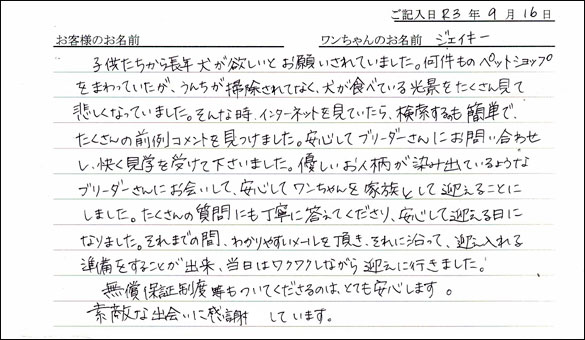 ご記入日 R3 年 9 月 16 日
お客様のお名前 ワンちゃんのお名前 ジェイキー
子供たちから長年犬が欲しいとお願いされていました。何件ものペットショップ
をまわっていたが、うんちが掃除されてなく、犬が食べている光景をたくさん見て
悲しくなっていました。そんな時、インターネットを見ていたら、検索するも簡単で、
たくさんの前例コメントを見つけました。安心してブリーダーさんにお問い合わせ
し、快く見学を受けて下さいました。優しいお人柄が染み出ているような
ブリーダーさんにお会いして、安心してワンちゃんを家族として迎えることに
しました。たくさんの質問にも丁寧に答えてくださり、安心して迎える日に
なりました。それまでの間、わかりやすいメールを頂き、それに沿って、迎え入れる
準備をすることが出来、当日はワクワクしながら迎えに行きました。
無償保証制度等もついてくださるのは、とても安心します。
素敵な出会いに感謝しています。